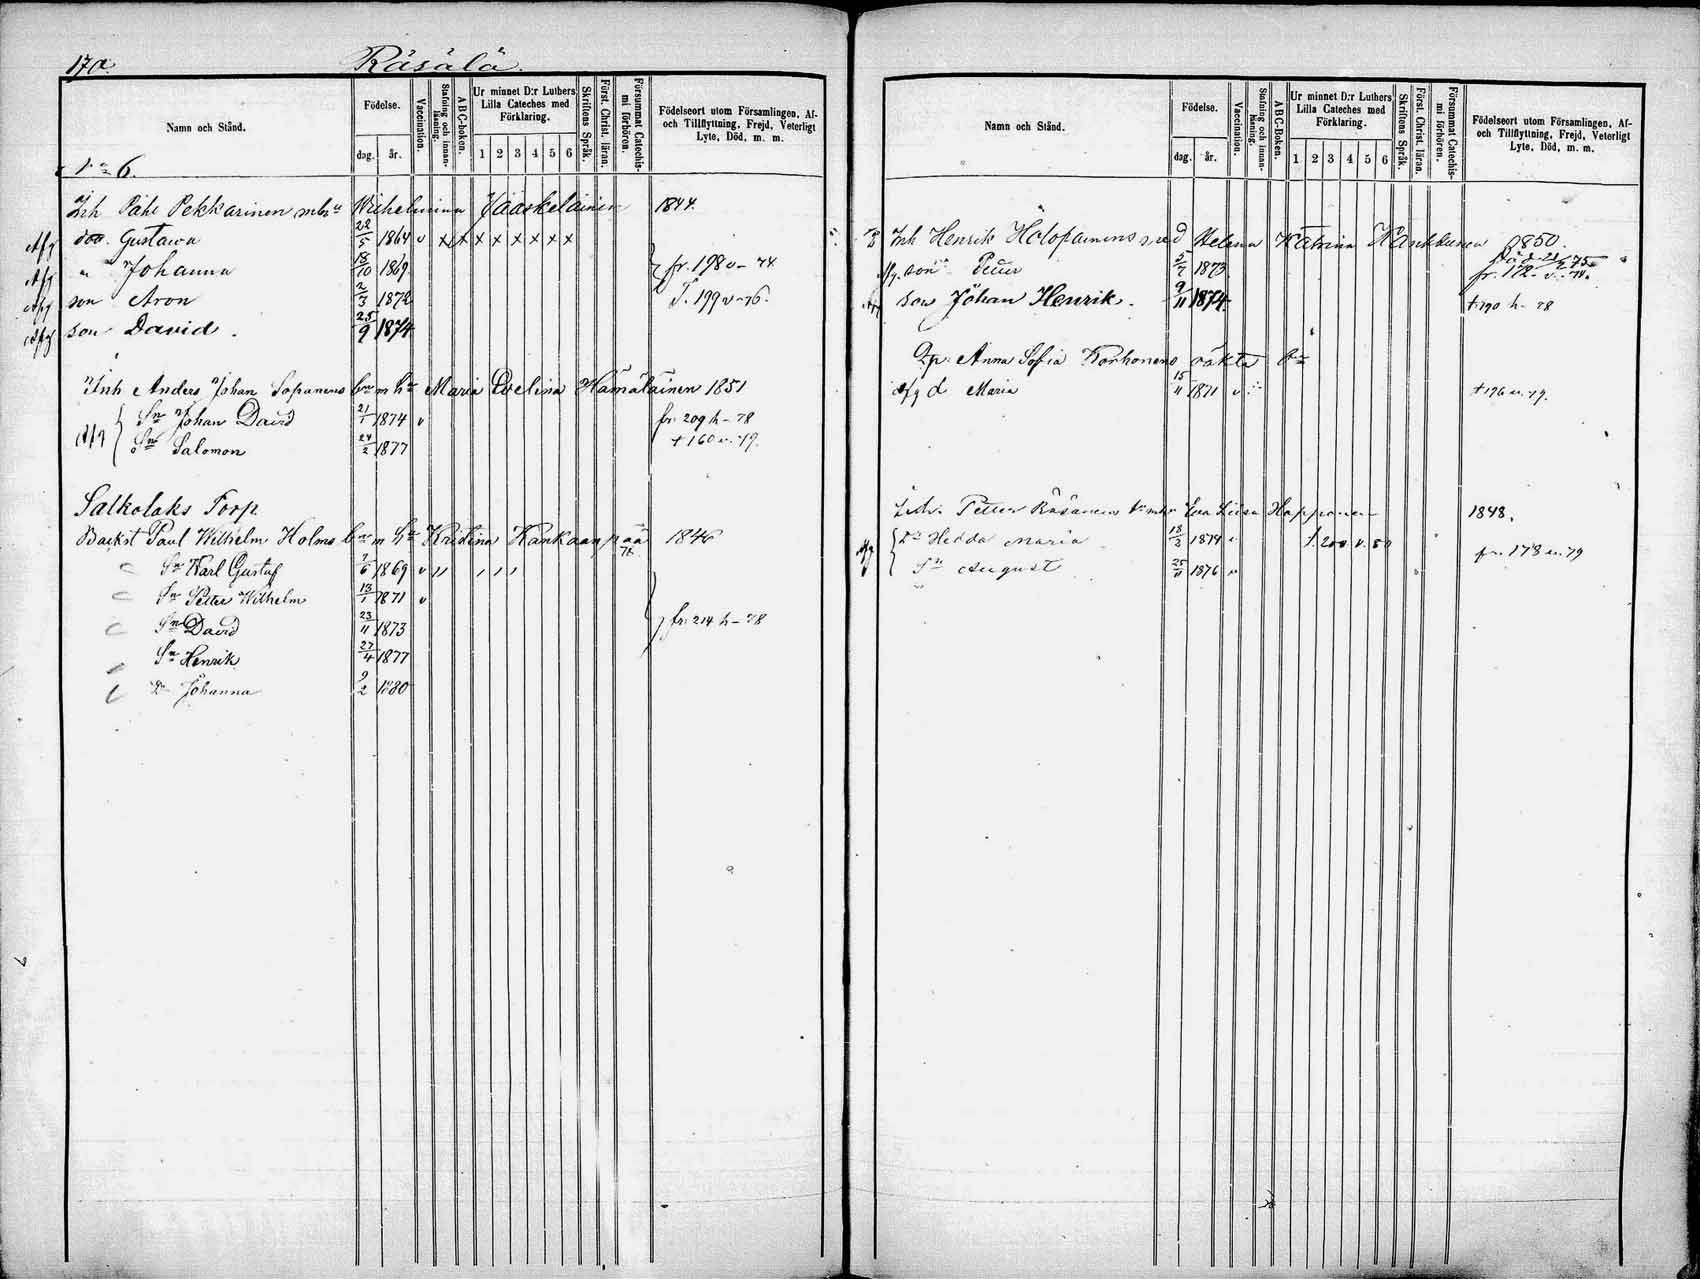 170.
Räsälä.
Namn och Stånd.
Födelse.
dag. år.
Vaccination.
Stafning och innan-läsning.
A B C-boken.
Ur minnet D:r Luthers Lilla Cateches med Förklaring.
1 2 3 4 5 6
Skriftens Språk.
Först. Christ. läran.
Försummat Catechis-mi förhören.
Födelseort utom Församlingen, Af- och Tillflyttning, Frejd, Veterligt Lyte, Död, m. m.
6.
Inh Påhl Pekkarinen Wilhelmina Jääskeläinen 1844.
Afg dot. Gustawa 22/5 1864 v x x x x x x x x
Afg " Johanna 18/10 1869 fr. 198 v - 74
Afg son Aron 2/3 1872 T. 199 v - 76.
Afg son David. 25/9 1874
Inh Anders Johan Sopanens m Maria Evelina Hämäläinen 1851
Sn Johan David 21/1 1874 v fr. 209 h - 78
Afg Sn Salomon 24/2 1877 + 160 v. 79.
Salkolaks Torp
Backst Paul Wilhelm Holms m Kristina Kankaanpää 1846
Sn Karl Gustaf 7/6 1869 v
Sn Petter Wilhelm 13/1 1871 v
Sn David 23/11 1873 fr. 214 h - 78
Sn Henrik 27/4 1877
Dr Johanna 9/2 1880
Namn och Stånd.
Födelse.
dag. år.
Vaccination.
Stafning och innan-läsning.
A B C-Boken.
Ur minnet D:r Luthers Lilla Cateches med Förklaring.
1 2 3 4 5 6
Skriftens Språk.
Först. Christ. läran.
Försummat Catechis-mi förhören.
Födelseort utom Församlingen, Af- och Tillflyttning, Frejd, Veterligt Lyte, Död, m. m.
Inh Henrik Holopainens Helena Katrina 1850.
Afg. son Petter 5/7 1873 fr. 172 v. 74.
son Johan Henrik. 9/11 1874 + 190 h - 78
Anna Sofia Korhonens oäkta
Afg d Maria 15/11 1871 v + 176 v. 79.
Inh. Petter Räsänens Eva Lisa Happonen 1848.
Afg Dr Hedda Maria 18/3 1874 f. 200 v. 80 fr. 178 v. 79
Sn August 25/11 1876